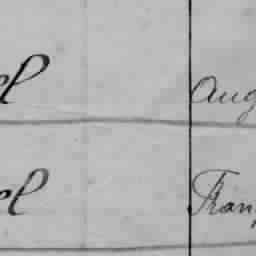 el Aug
el Fran